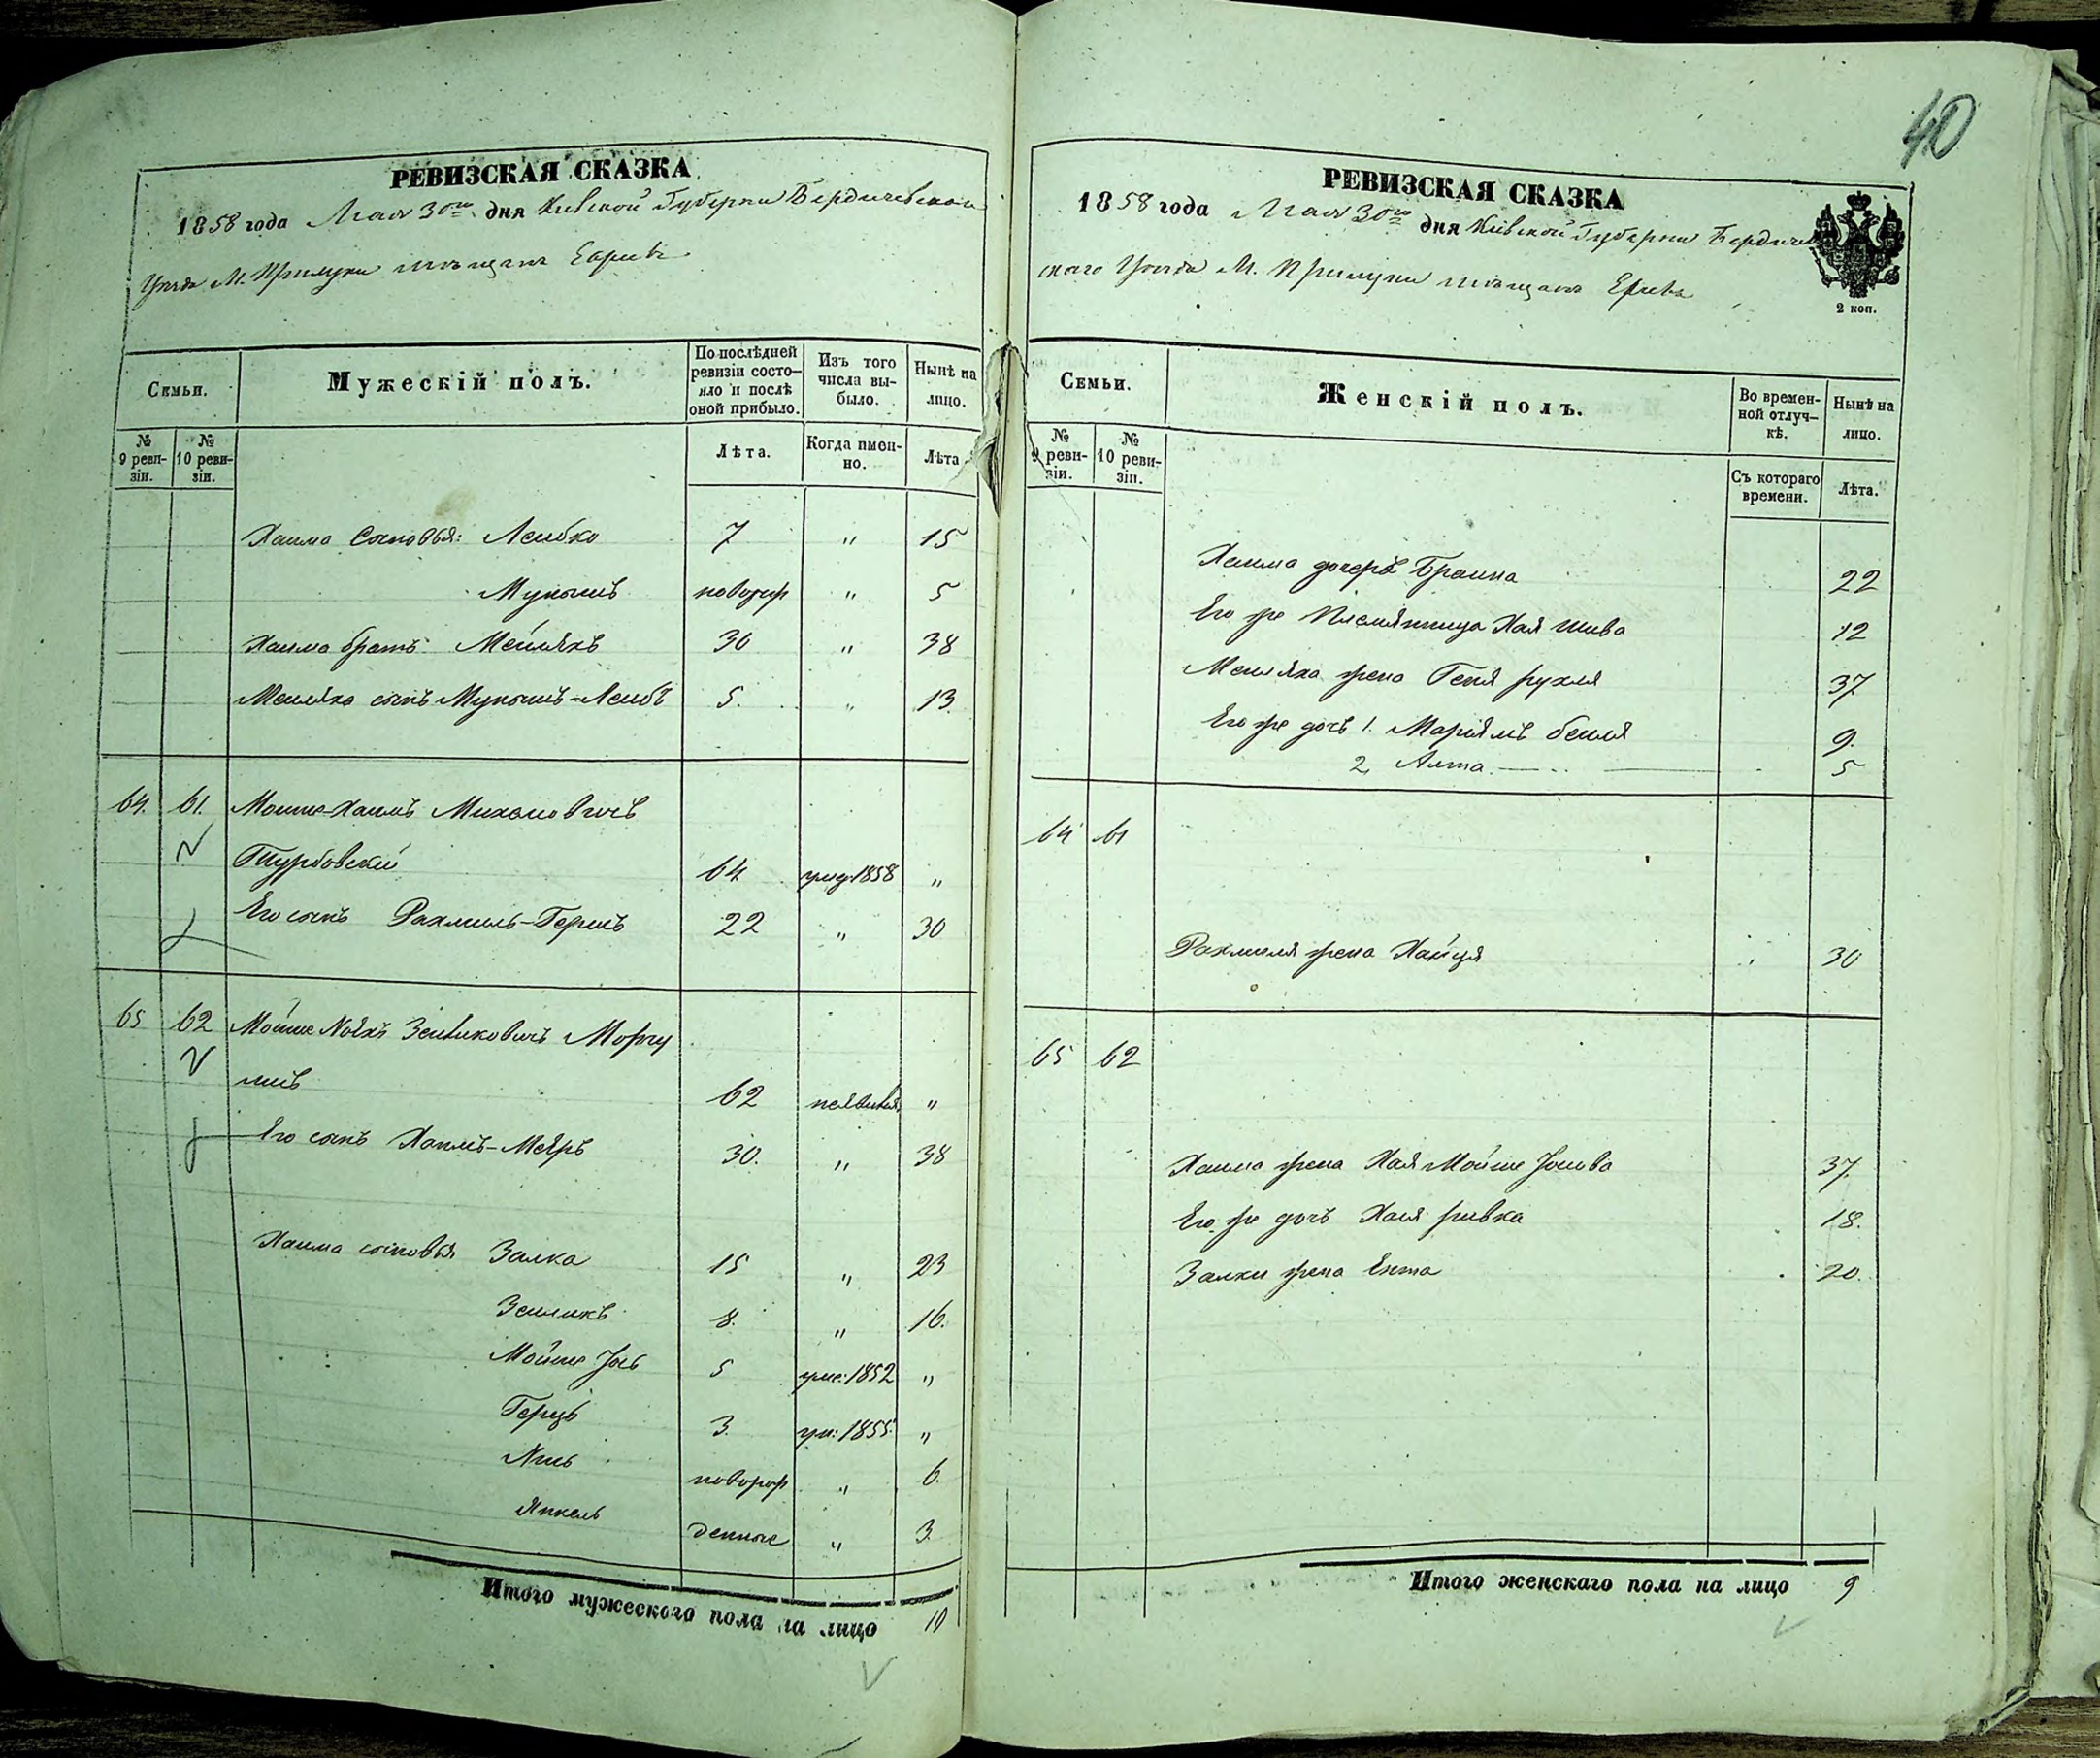 40
РЕВИЗСКАЯ СКАЗКА
1858 года Мая 30го дня Кіевской Губерніи Бердичевскаго
Уѣзда М. Прилуки мѣщанъ Евреевъ
Семьи.
Мужескій полъ.
По послѣдней ревизіи состояло и послѣ оной прибыло.
Изъ того числа выбыло.
Нынѣ на лицо.
№ 9 ревизіи.
№ 10 ревизіи.
Лѣта.
Когда именно.
Лѣта
Хаима Сыновья: Лейбко 7 " 15
Мунышъ новорож " 5
Хаима братъ Мейляхъ 30 " 38
Мейляха сынъ Мунышъ-Лейбъ 5. " 13.
64. 61. Мошко-Хаимъ
Турбовскій 64 умер 1858 "
Его сынъ Рахмиль-Гершъ 22 " 30
65 62 Мойше Зейликовичъ Моргу
лисъ 62 неявився "
Его сынъ Хаимъ-Мееръ 30. " 38
Хаима сыновья Залка 15 " 23
Зейликъ 8. " 16.
Мойше Јосъ 5 уме: 1852 "
Герцъ 3. ум: 1855 "
новорож " 6.
Янкель денные " 3.
Итого мужескаго пола на лицо 10
РЕВИЗСКАЯ СКАЗКА
1858 года Мая 30го дня Кіевской Губерніи Бердичев
скаго Уѣзда М. Прилуки мѣщанъ Евреевъ
2 коп.
Семьи.
Женскій полъ.
Во временной отлучкѣ.
Нынѣ на лицо.
№ 9 ревизіи.
№ 10 ревизіи.
Съ котораго времени.
Лѣта.
Хаима дочерь Браина 22
Его же Племянница Хая Шива 12
Мейляха жена Геня рухля 37.
Его же дочь 1. Маріямъ бейля 9.
2, Алта 5
64 61
Рахмиля жена Хайця 30
65 62
Хаима жена Хая Мойше Јосива 37.
Его же дочь Хая ривка 18.
Залки жена Ента 20.
Итого женскаго пола на лицо 9